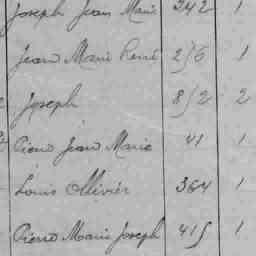 Joseph Jean Marie 342 1
Jean Marie René 256 1
Joseph 852 2
Pierre Jean Marie 41 1
Louis Ollivier 364 1
Pierre Marie Joseph 415 1